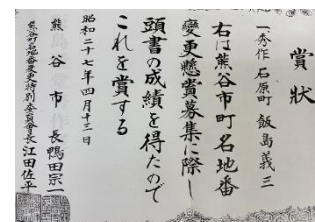 賞状
一、秀作 石原町 飯島義三
右は熊谷市町名地番
変更懸賞募集に際し
頭書の成績を得たので
これを賞する
昭和二十七年四月十三日
熊谷市長鴨田宗一
熊谷市町名地番変更特別委員会長江田佐平